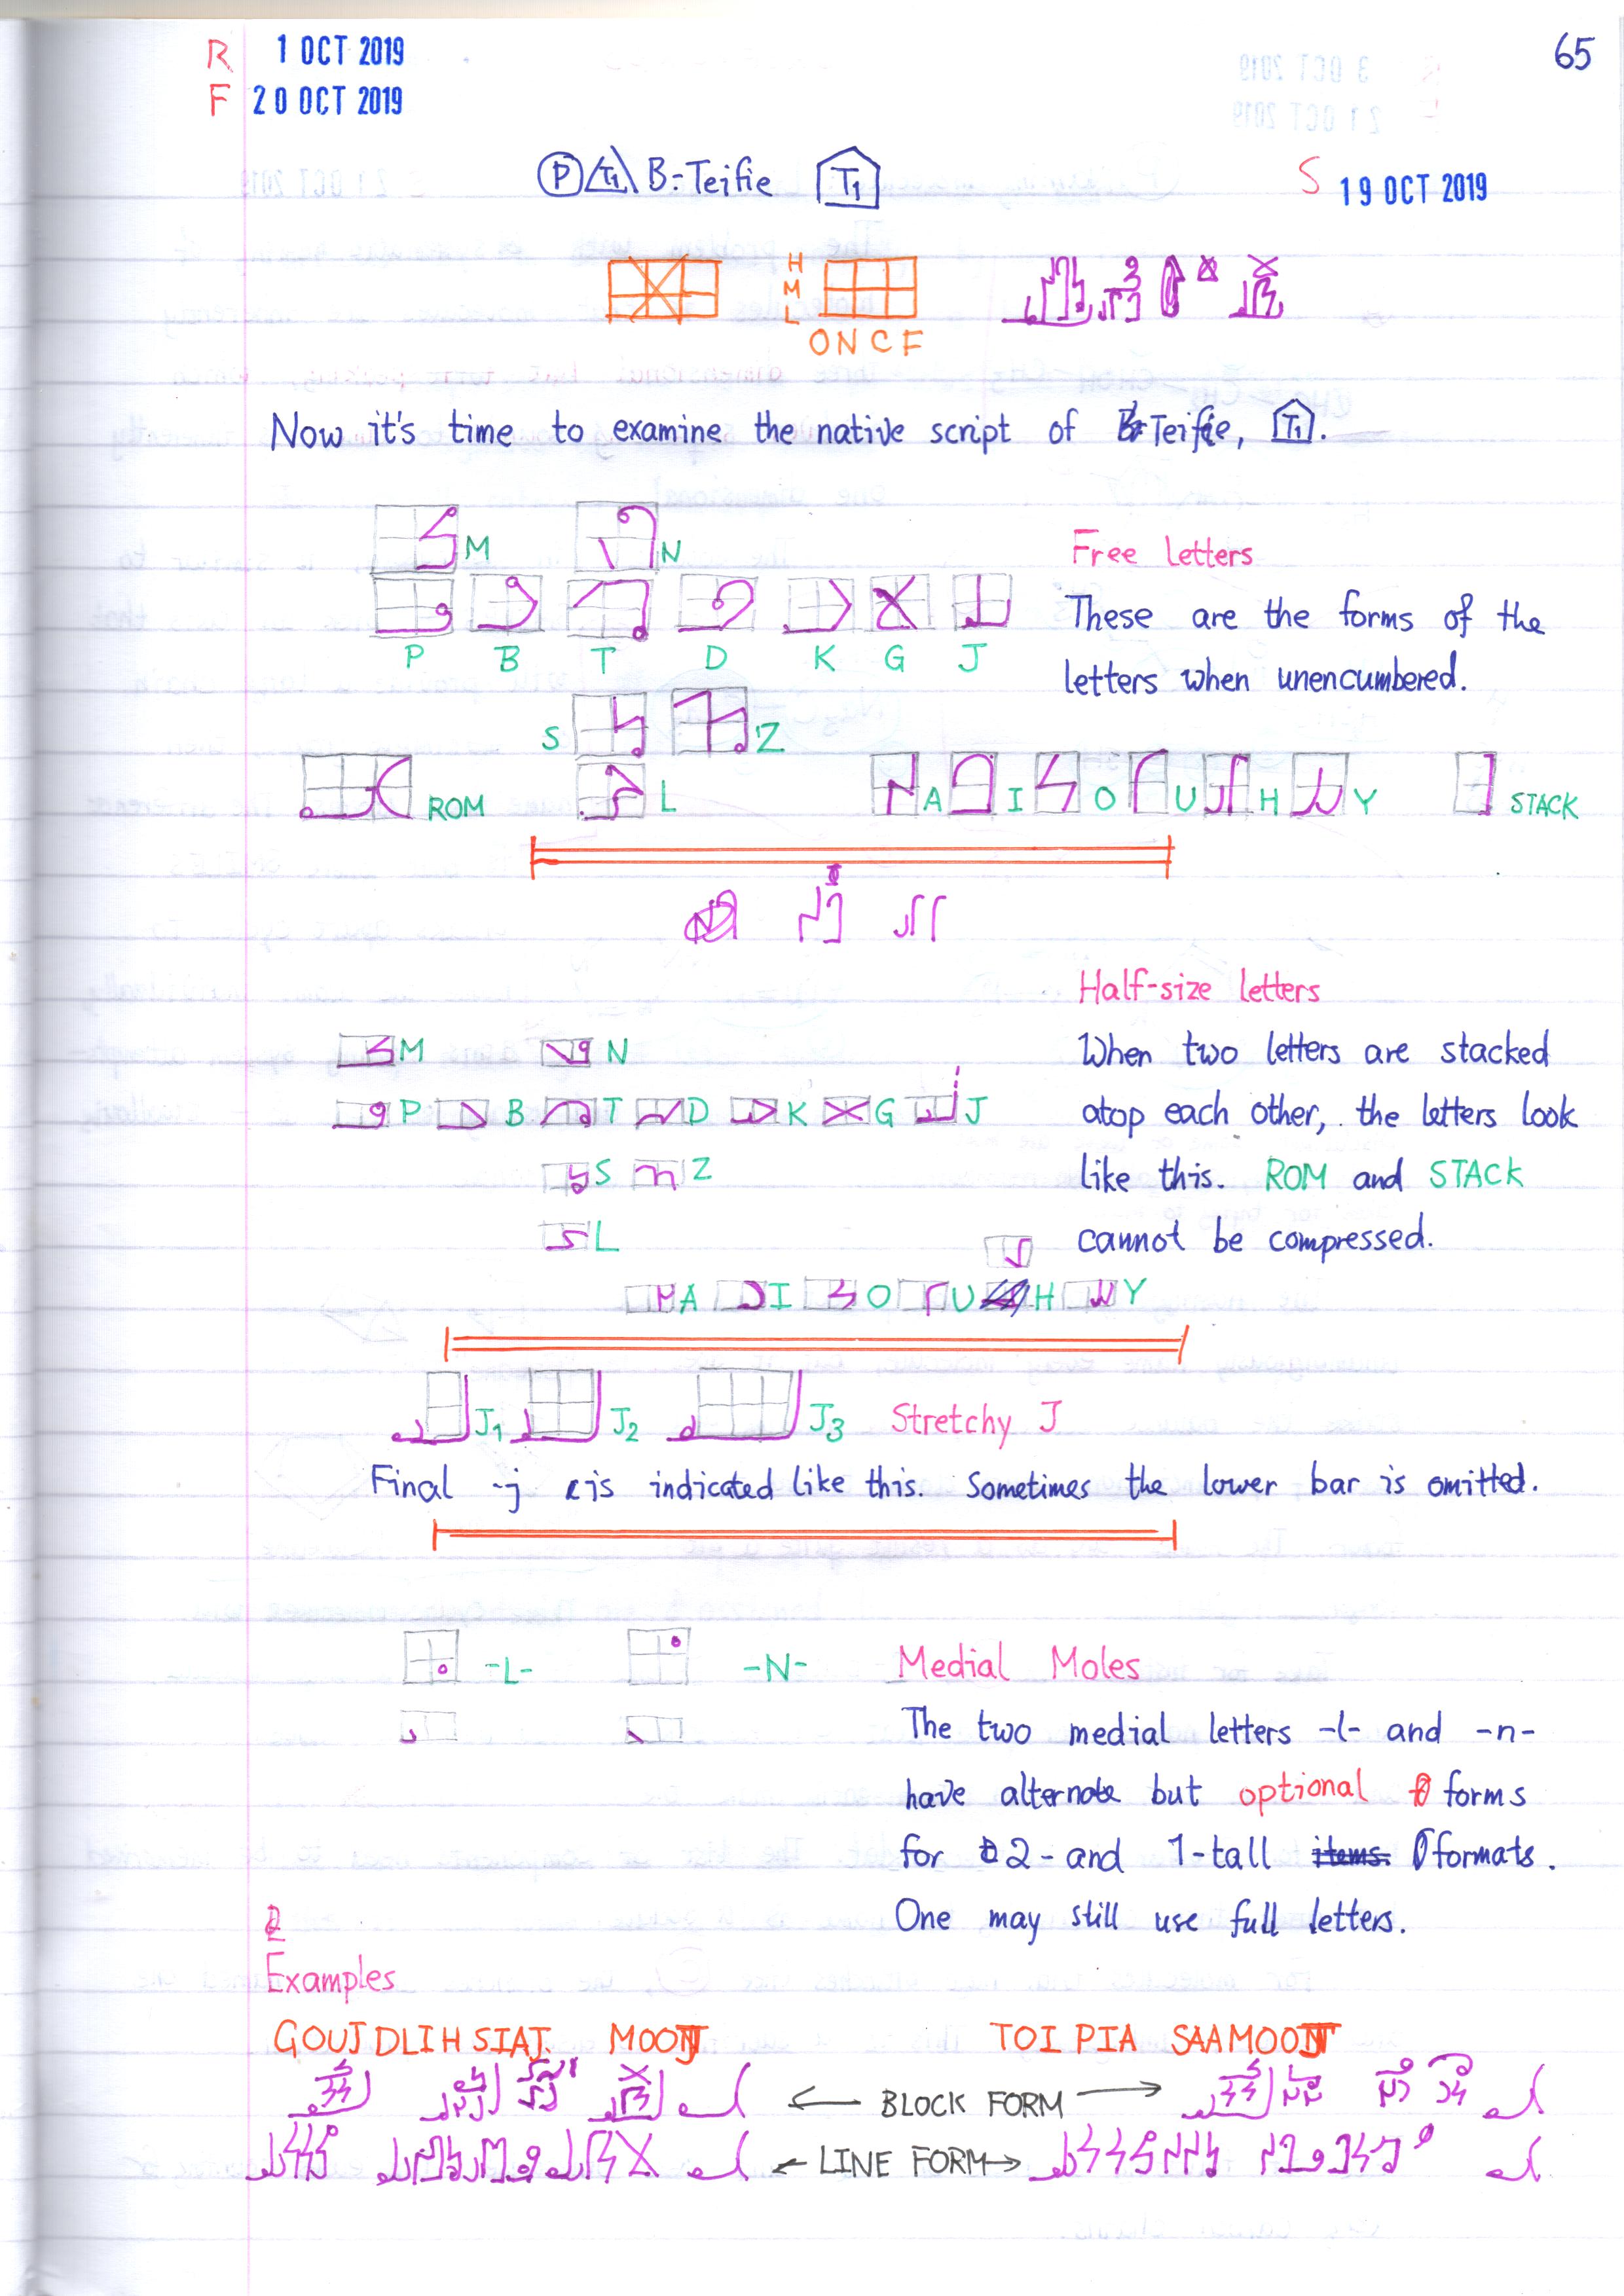 65
R 1 OCT 2019
F 20 OCT 2019
P T1 B:Teifie T1
S 19 OCT 2019
H
M
L
O N C F
Now it's time to examine the native script of B:Teifie, T1.
M N
Free letters
These are the forms of the
letters when unencumbered.
P B T D K G J
S Z
ROM L A I O U H Y STACK
Half-size letters
When two letters are stacked
atop each other, the letters look
like this. ROM and STACK
cannot be compressed.
M N
P B T D K G J
S Z
L
A I O U H Y
J1 J2 J3 Stretchy J
Final -j is indicated like this. Sometimes the lower bar is omitted.
-L- -N- Medial Moles
The two medial letters -l- and -n-
have alternate but optional forms
for 2- and 1-tall formats.
One may still use full letters.
Examples
GOUJ DLIH SIAJ. MOONJ TOI PIA SAAMOONJ
← BLOCK FORM →
← LINE FORM →